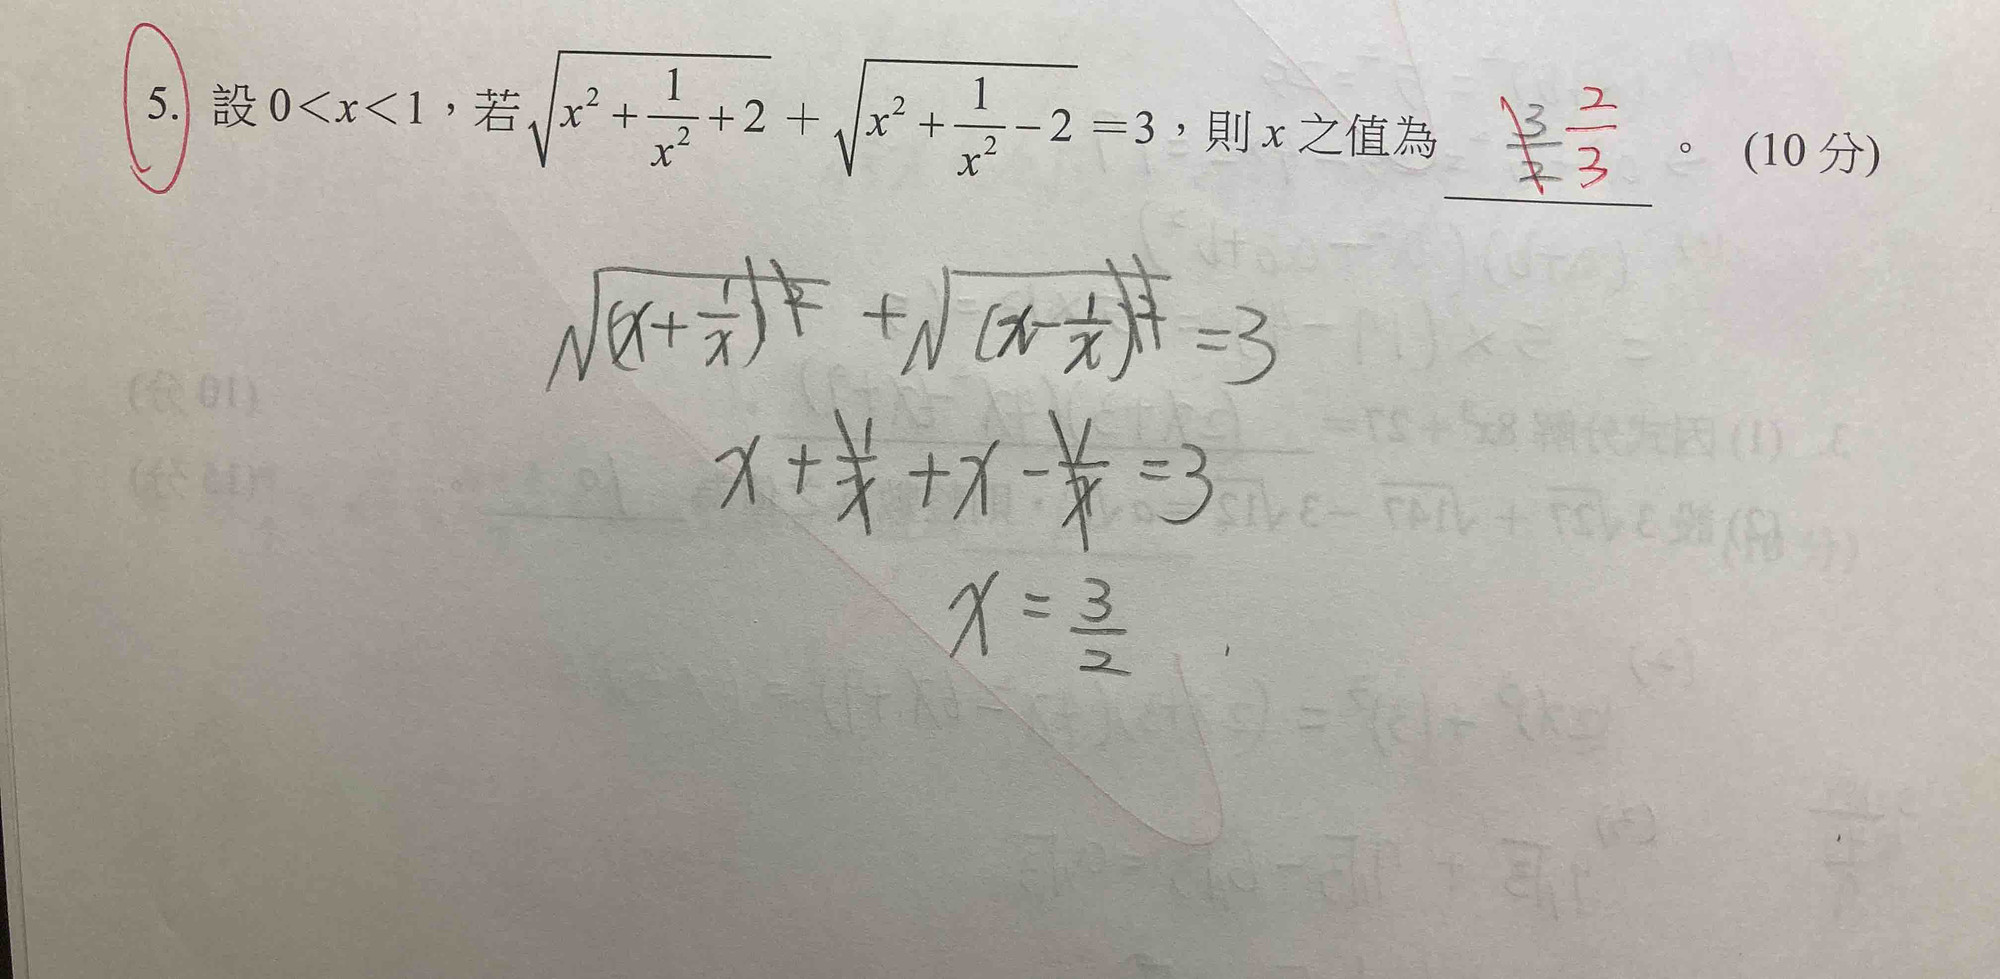 5. 設 0<x<1，若 √(x² + 1/x² + 2) + √(x² + 1/x² − 2) = 3，則 x 之值為 3/2 2/3 。 (10 分)
√((x + 1/x)²) + √((x − 1/x)²) = 3
x + 1/x + x − 1/x = 3
x = 3/2